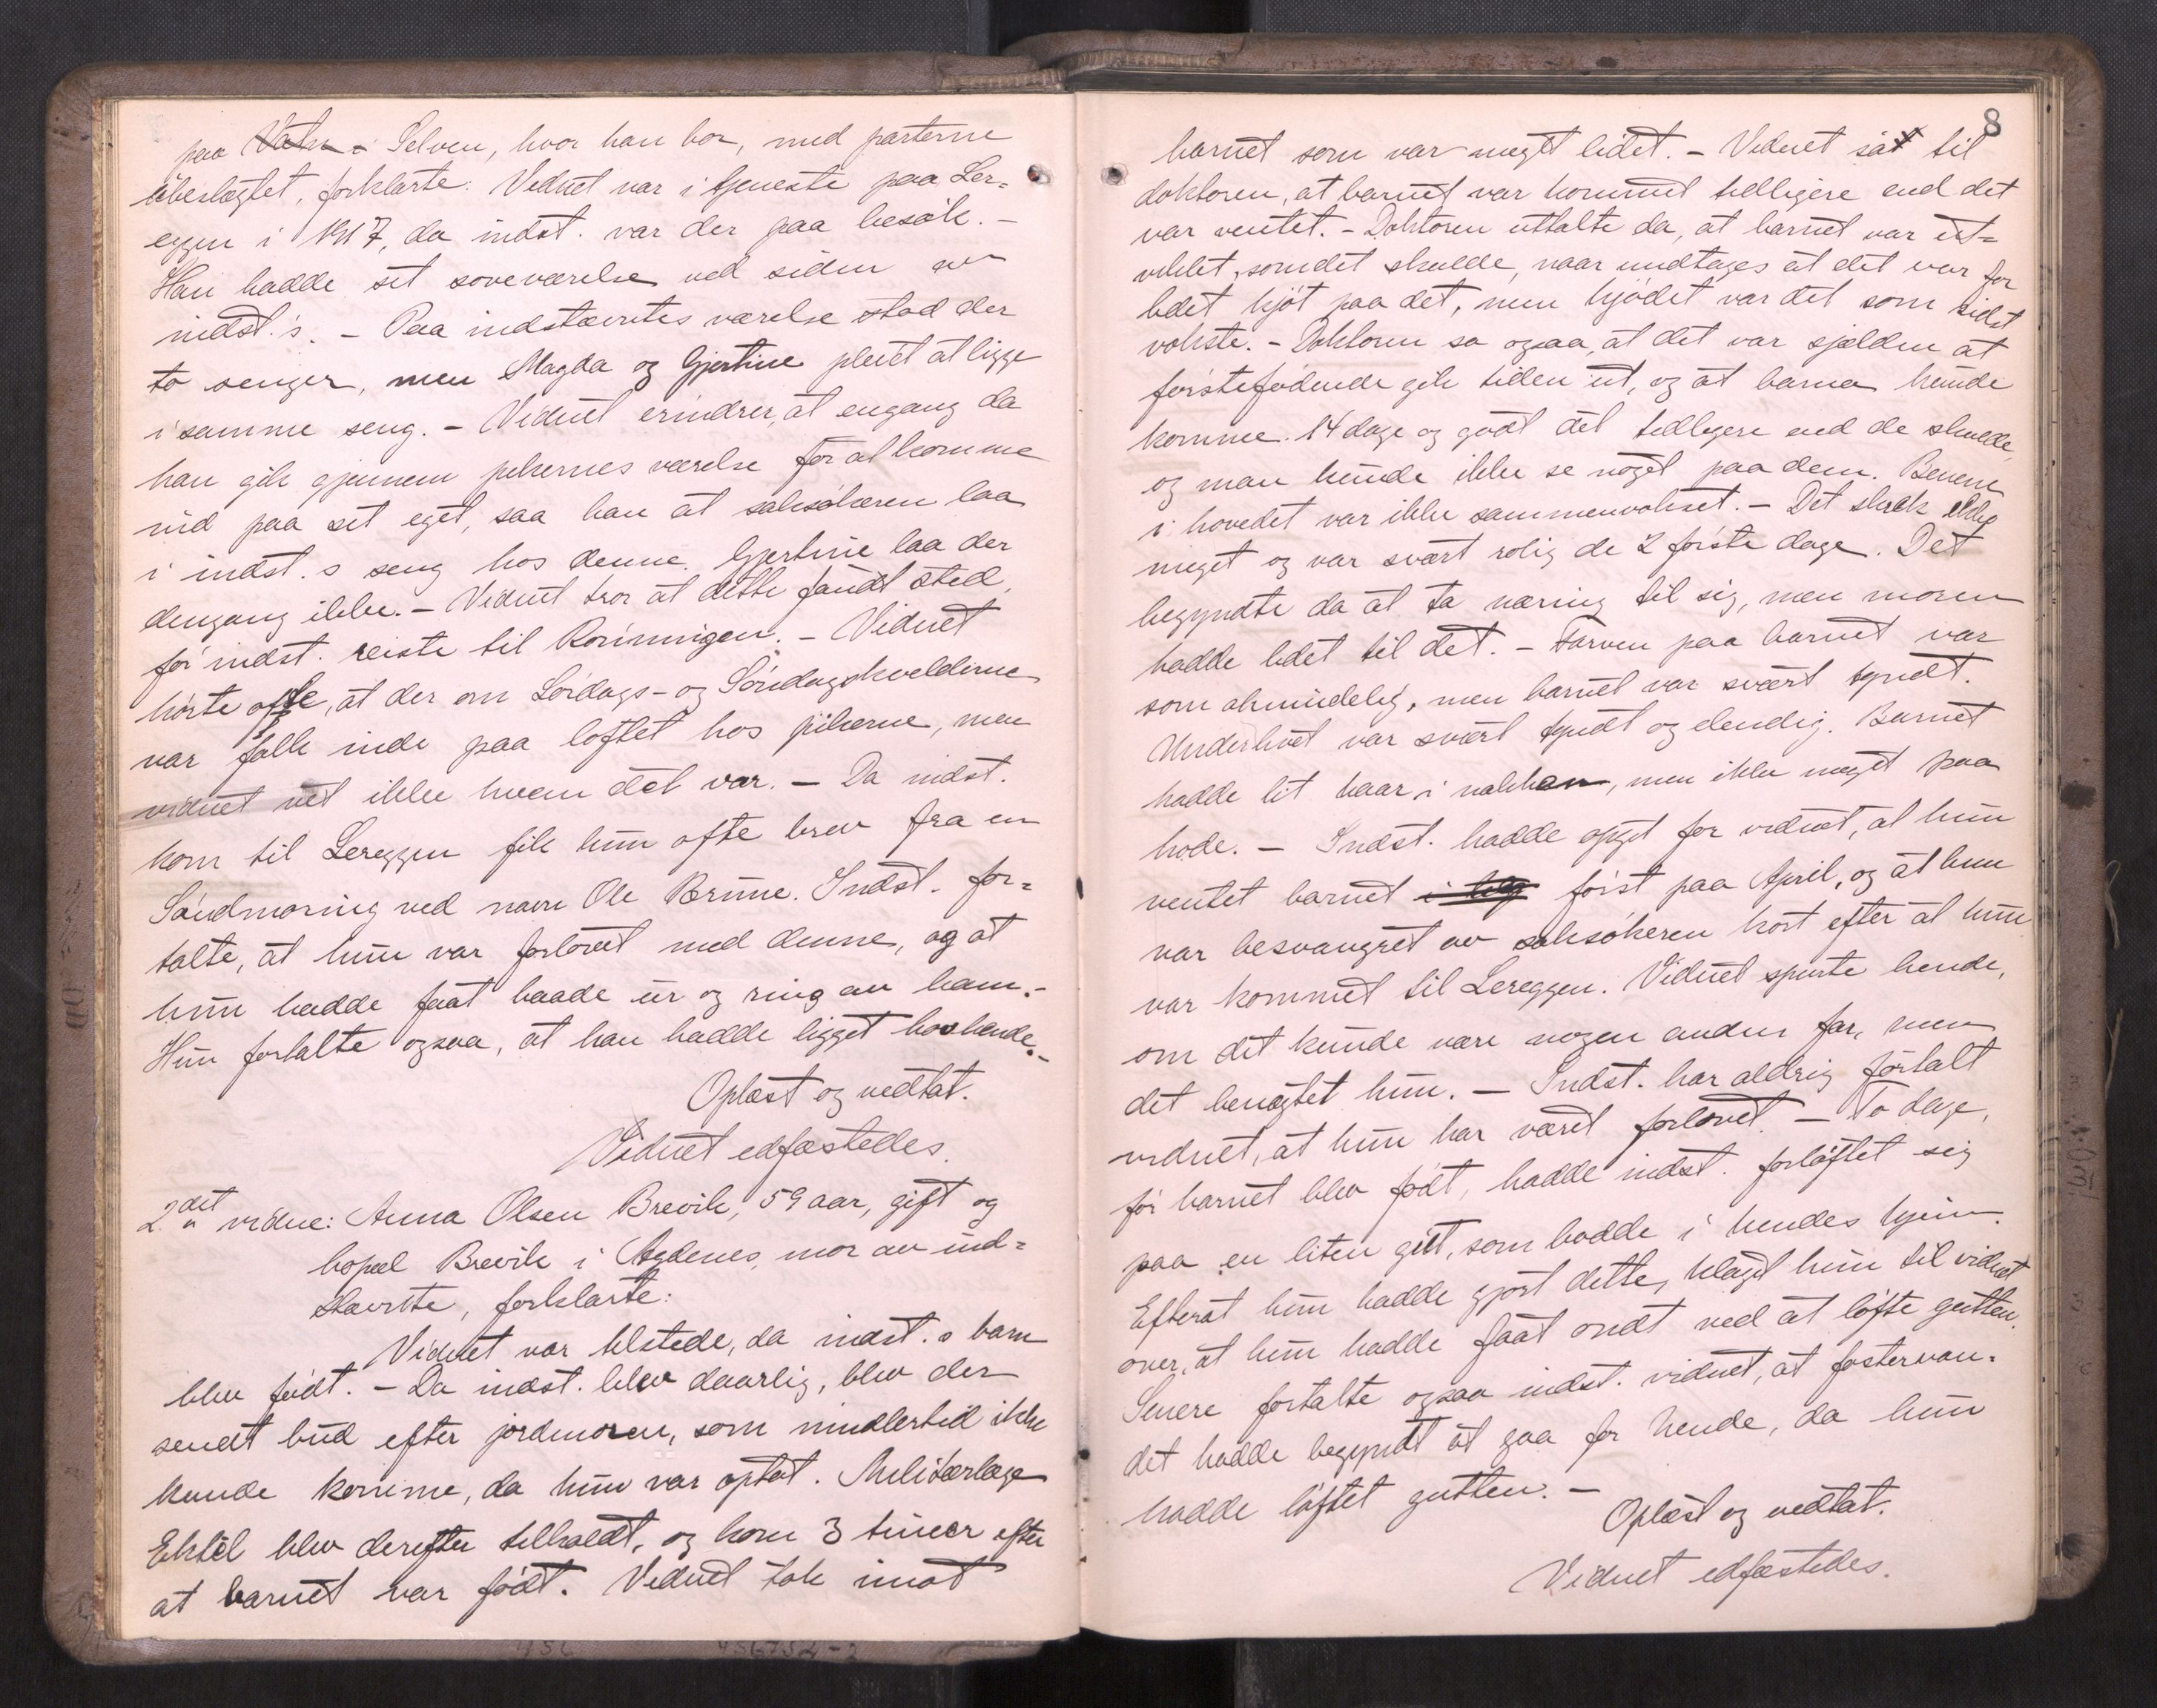 paa Vatn i Selven, hvor han bor, med parterne
ubeslægtet, forklarte: Vidnet var i tjeneste paa Ler-
eggen i 1917, da indst. var der paa besøk. -
Han hadde sit soveværelse ved siden av
indst.'s. - Paa indstævntes værelse stod der
to senger, men Magda og Gjertine pleiet at ligge
i samme seng. - Vidnet erindrer, at engang da
han gik gjennem pikernes værelse for at komme
ind paa sit eget, saa han at saksøkeren laa
i indst.s seng hos denne. Gjertine laa der
dengang ikke. - Vidnet tror at dette fandt sted,
før indst. reiste til Rønningen. - Vidnet
hørte ofte, at der om Lørdags- og Søndagskvelderne
var folk inde paa loftet hos pikerne, men
vidnet vet ikke hvem det var. - Da indst.
kom til Lereggen fik hun ofte brev fra en
Søndmøring ved navn Ole Brune. Indst. for-
talte, at hun var forlovet med denne, og at
hun hadde faat baade ur og ring av ham. -
Hun fortalte ogsaa, at han hadde ligget hos hende. -
Oplæst og vedtat.
Vidnet edfæstedes.
2det vidne: Anna Olsen Brevik, 59 aar, gift og
bopæl Brevik i Agdenes, mor av ind-
stævnte, forklarte:
Vidnet var tilstede, da indst.s barn
blev født. - Da indst. blev daarlig, blev der
sendt bud efter jordmoren, som imidlertid ikke
kunde komme, da hun var optat. Militærlæge
Ektel blev derefter tilkaldt, og kom 3 timer efter
at barnet var født. Vidnet tok imot
8
barnet som var meget litet. - Vidnet sa til
doktoren, at barnet var kommet tidligere end det
var ventet. - Doktoren uttalte da, at barnet var ut-
viklet, som det skulde, naar undtages at det var for
litet kjøt paa det, men kjødet var det som sidst
vokste. - Doktoren sa ogsaa, at det var sjelden at
førstefødende gik tiden ut, og at barna kunde
komme 14 dage og godt det tidligere end de skulde
og man kunde ikke se noget paa dem. Benene
i hovedet var ikke sammenvokset. - Det skrek ikke
meget og var svært rolig de 2 første dage. Det
begyndte da at ta næring til sig, men moren
hadde litet til det. - Farven paa barnet var
som almindelig, men barnet var svært tyndt.
Underlivet var svært tyndt og elendig. Barnet
hadde lit haar i nakken, men ikke meget paa
hode. - Indst. hadde opgit for vidnet, at hun
ventet barnet først paa April, og at hun
var besvangret av saksøkeren kort efter at hun
var kommet til Lereggen. Vidnet spurte hende,
om det kunde være nogen anden far, men
det benegtet hun. - Indst. har aldrig fortalt
vidnet, at hun har været forlovet. - To dage,
før barnet blev født, hadde indst. forløftet sig
paa en liten gut, som bodde i hendes hjem.
Efterat hun hadde gjort dette, klaget hun til vidnet
over, at hun hadde faat ondt ved at løfte gutten.
Senere fortalte ogsaa indst. vidnet, at fostervan-
det hadde begyndt at gaa for hende, da hun
hadde løftet gutten. -
Oplæst og vedtat.
Vidnet edfæstedes.